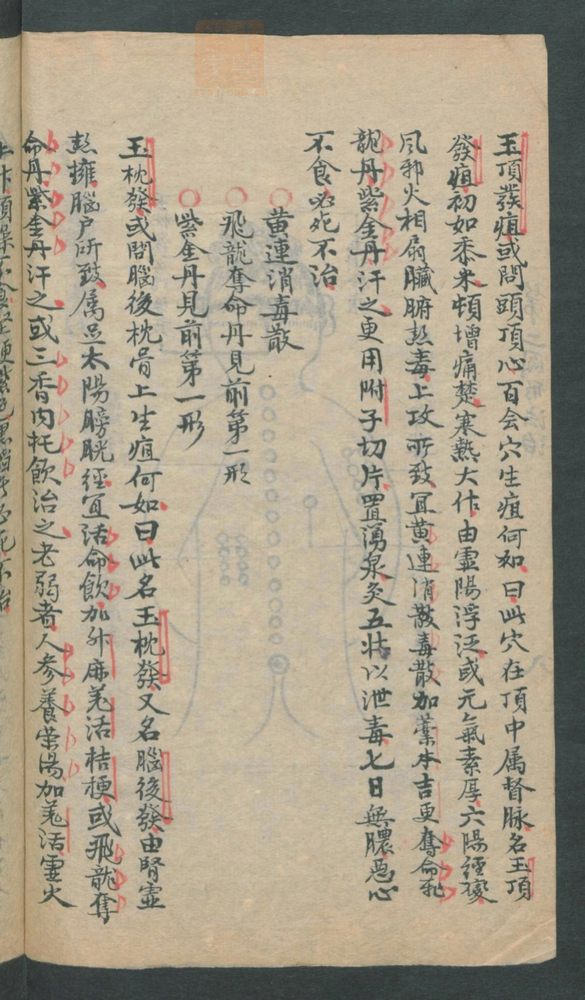 玉頂發疽或問頭頂心百会穴生疽何如曰此穴在頂中属督脉名玉頂
發疽初如黍米頓增痛楚寒熱大作由虛陽浮泛或元氣素厚六陽經變
風邪火相扇臟腑熱毒上攻所致宜黄連消散毒散加藁本吉更奪命飛
龍丹紫金丹汗之更用附子切片置湧泉灸五壮以泄毒七日無膿惡心
不食必死不治
黄連消毒散
飛龍奪命丹見前第一形
紫金丹見前第一形
玉枕發或問腦後枕骨上生疽何如曰此名玉枕發又名腦後發由腎虛
熱擁腦户所致属足太陽膀胱經宜活命飲加升麻羌活桔梗或飛龍奪
命丹紫金丹汗之或三香内托飲治之老弱者人参養荣湯加羌活虛火